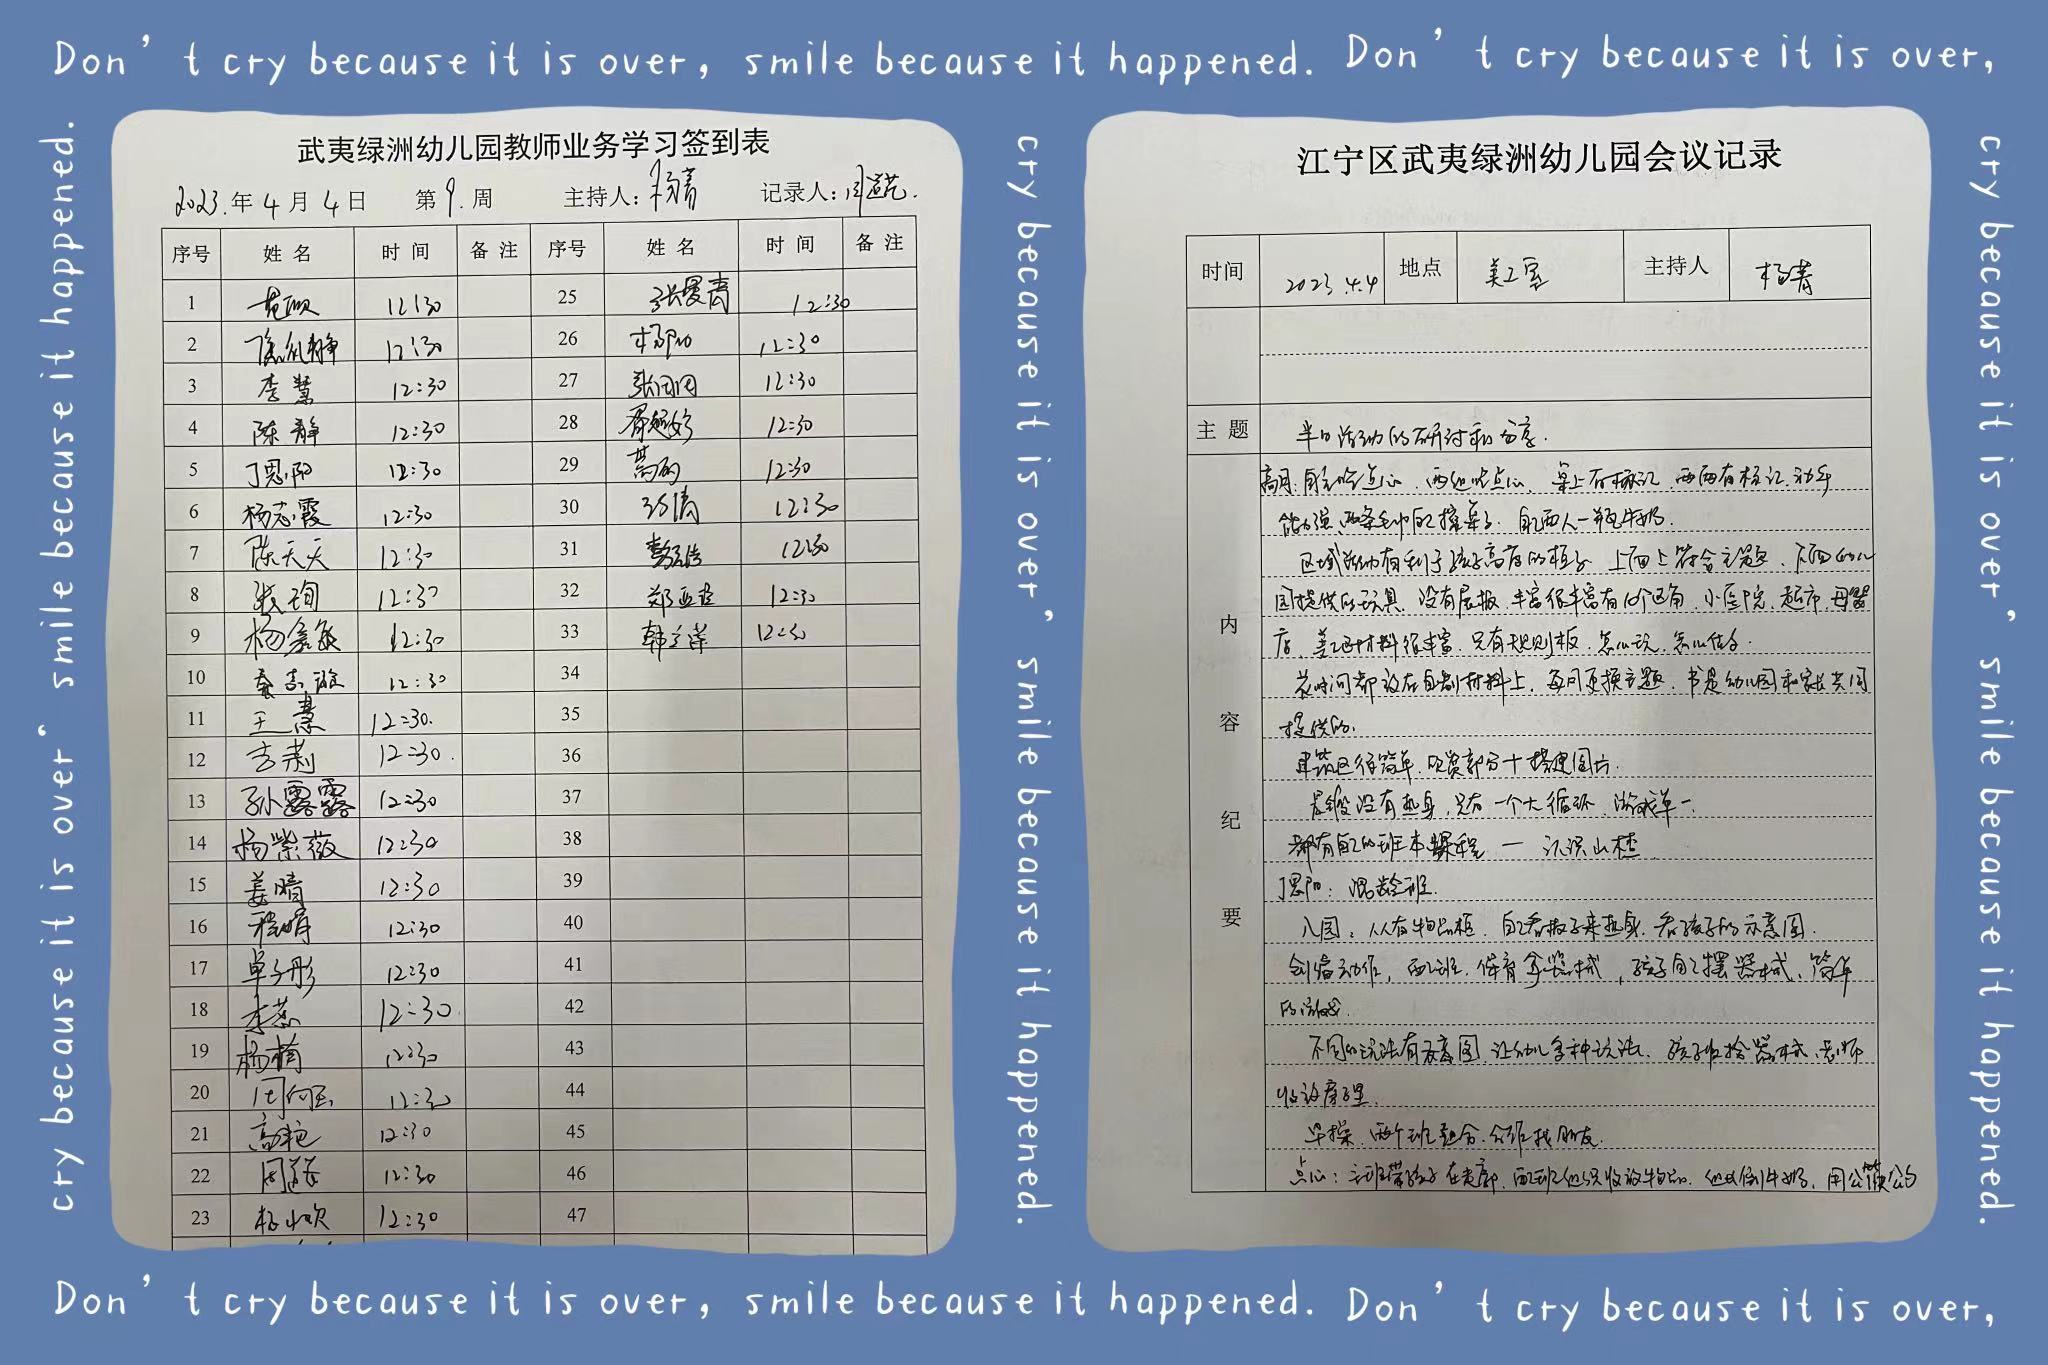 Don't cry because it is over, smile because it happened. Don't cry because it is over,
cry because it is over" smile because it happened.
武夷绿洲幼儿园教师业务学习签到表
2023.年4月4日 第9.周 主持人:杨青 记录人:
序号 姓名 时间 备注 序号 姓名 时间 备注
1 12:30 25 张曼青 12:30
2 12:30 26 12:30
3 李慧 12:30 27 张团团 12:30
4 陈静 12:30 28 12:30
5 丁思阳 12:30 29 12:30
6 杨志霞 12:30 30 12:30
7 陈天天 12:30 31 12:30
8 张珣 12:30 32 12:30
9 12:30 33 12:30
10 12:30 34
11 王素 12:30. 35
12 吉莉 12:30. 36
13 孙露露 12:30 37
14 杨紫薇 12:30 38
15 姜晴 12:30 39
16 程婧 12:30 40
17 单子彤 12:30 41
18 李蕊 12:30 42
19 杨楠 12:30 43
20 12:30 44
21 高艳 12:30 45
22 12:30 46
23 12:30 47
cry because it is over" smile because it happened.
江宁区武夷绿洲幼儿园会议记录
时间 2023.4.4 地点 美工室 主持人 杨青
主题 半日活动的研讨和分享.
内容纪要
高月:自主吃点心、两组吃点心,桌上有标记,两两有标记,动手
能力强,两条毛巾自己擦桌子.自己两人一瓶牛奶.
区域活动有利于孩子高度的柜子 上面上符合主题、下面幼儿
园提供的玩具,没有展板,丰富很丰富有10个区角,小医院,超市,母婴
店,美工区材料很丰富,只有规则板,怎么玩,怎么结束.
花时间都放在自制材料上,每月更换主题,书是幼儿园和家长共同
提供的.
建筑区很简单,欣赏部分+搭建图片.
没有热身,只有一个大循环,游戏单一.
都有自己的班本课程 — 认识山楂
丁思阳:混龄班.
入园:人人有物品柜,自己看板子来热身,看孩子的示意图.
创编动作,配班.保育拿器械,孩子自己摆器械、简单
的游戏.
不同的玩法有示意图,让幼儿多种玩法.孩子收拾器械,老师
收放房子里.
早操,两个班组合,合作找朋友.
点心:主班带孩子在走廊,配班组织收放物品.他们倒牛奶,用公筷公勺
cry because it is over" smile because it happened.
Don't cry because it is over, smile because it happened. Don't cry because it is over,